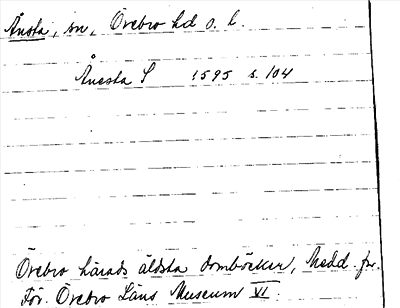 Ånsta, sn, Örebro hd o. l.
Ånesta S 1595 s. 104
Örebro härads äldsta domböcker, Medd. fr.
För. Örebro Läns Museum VI.